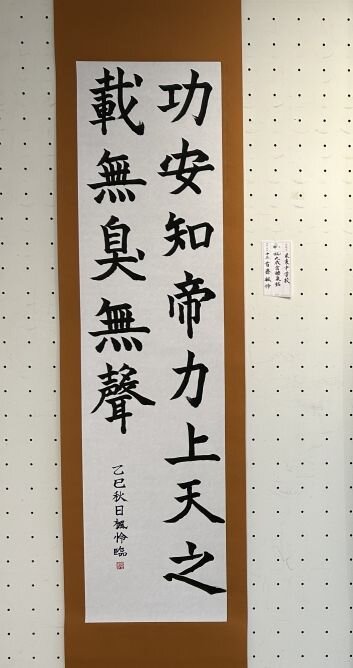 功安知帝力上天之
載無臭無聲
乙巳秋日楓怜臨